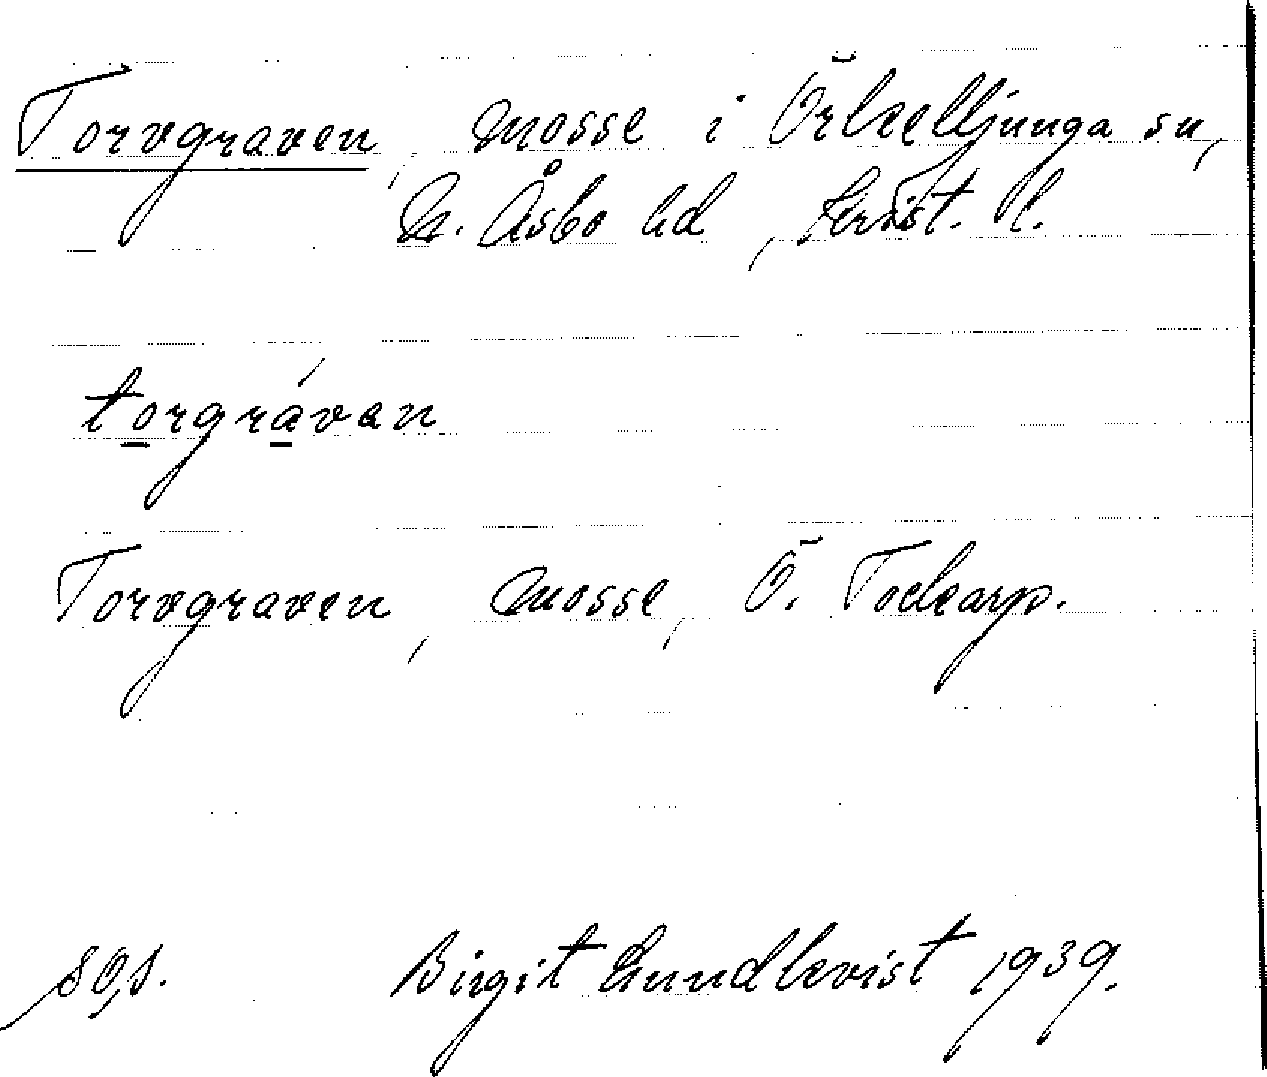 Torvgraven, mosse i Örkelljunga sn,
N. Åsbo hd, Krist. l.
torgráven
Torvgraven, mosse, Ö. Tockarp.
Birgit Lundkvist 1939.